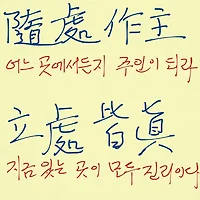 隨處作主
어느 곳에서든지 주인이 되라
立處皆眞
지금 있는 곳이 모두 진리이다